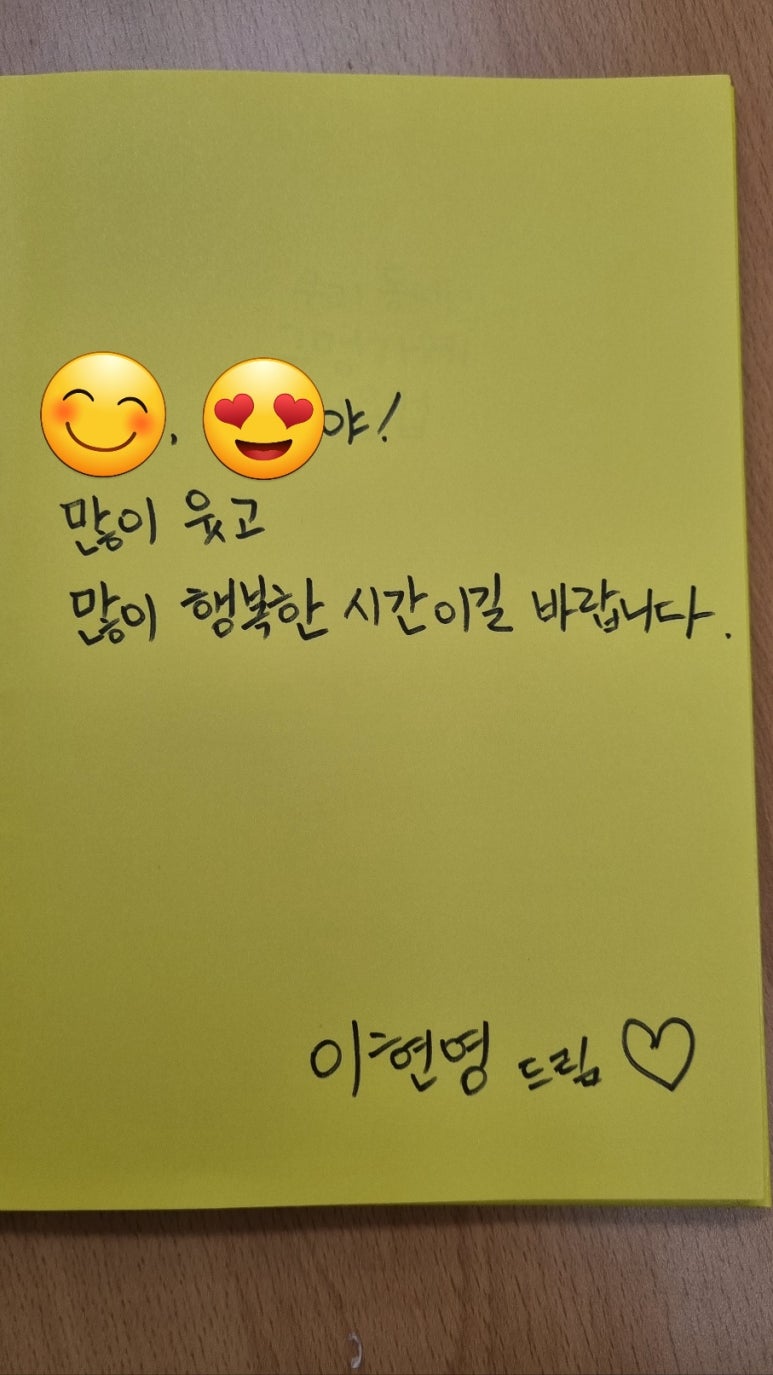 😊, 😍야!
많이 웃고
많이 행복한 시간이길 바랍니다.
이현영 드림 ♡